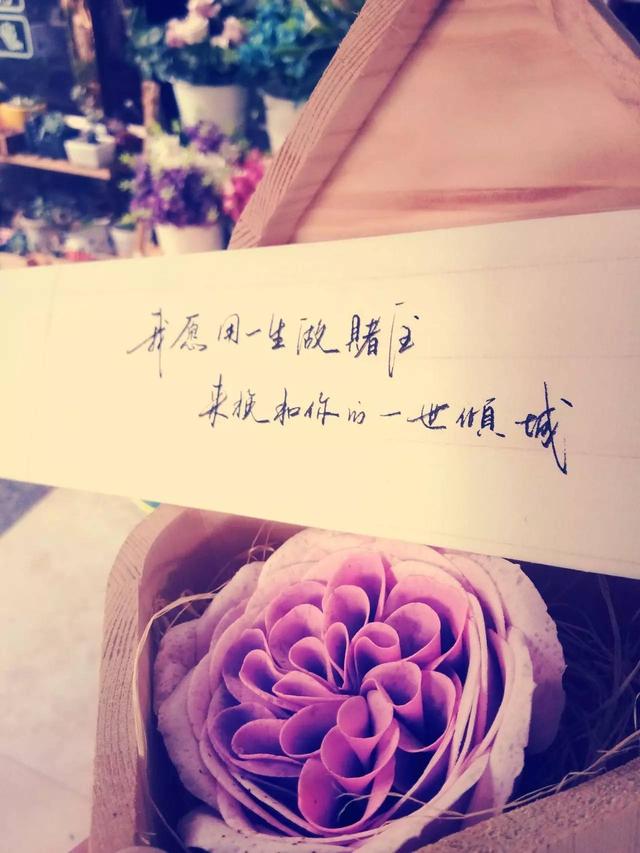 我愿用一生做賭注
来换和你的一世傾城